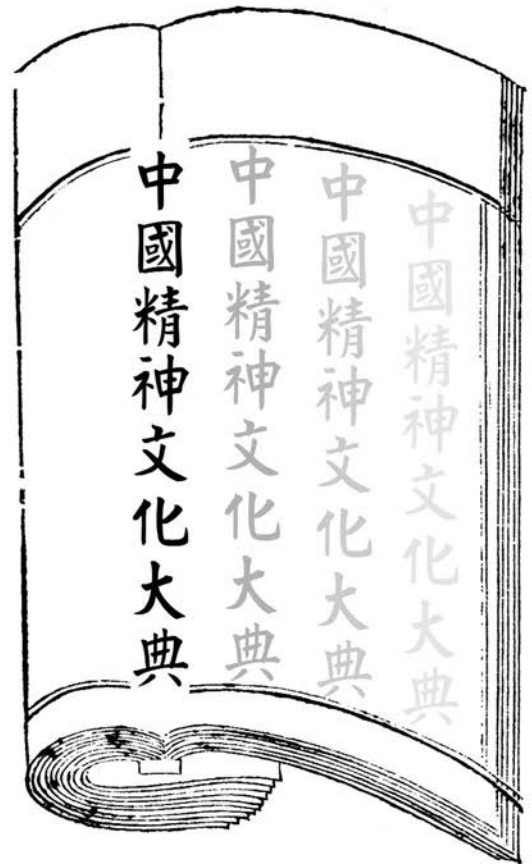 中國精神文化大典
中國精神文化大典
中國精神文化大典
中國精神文化大典